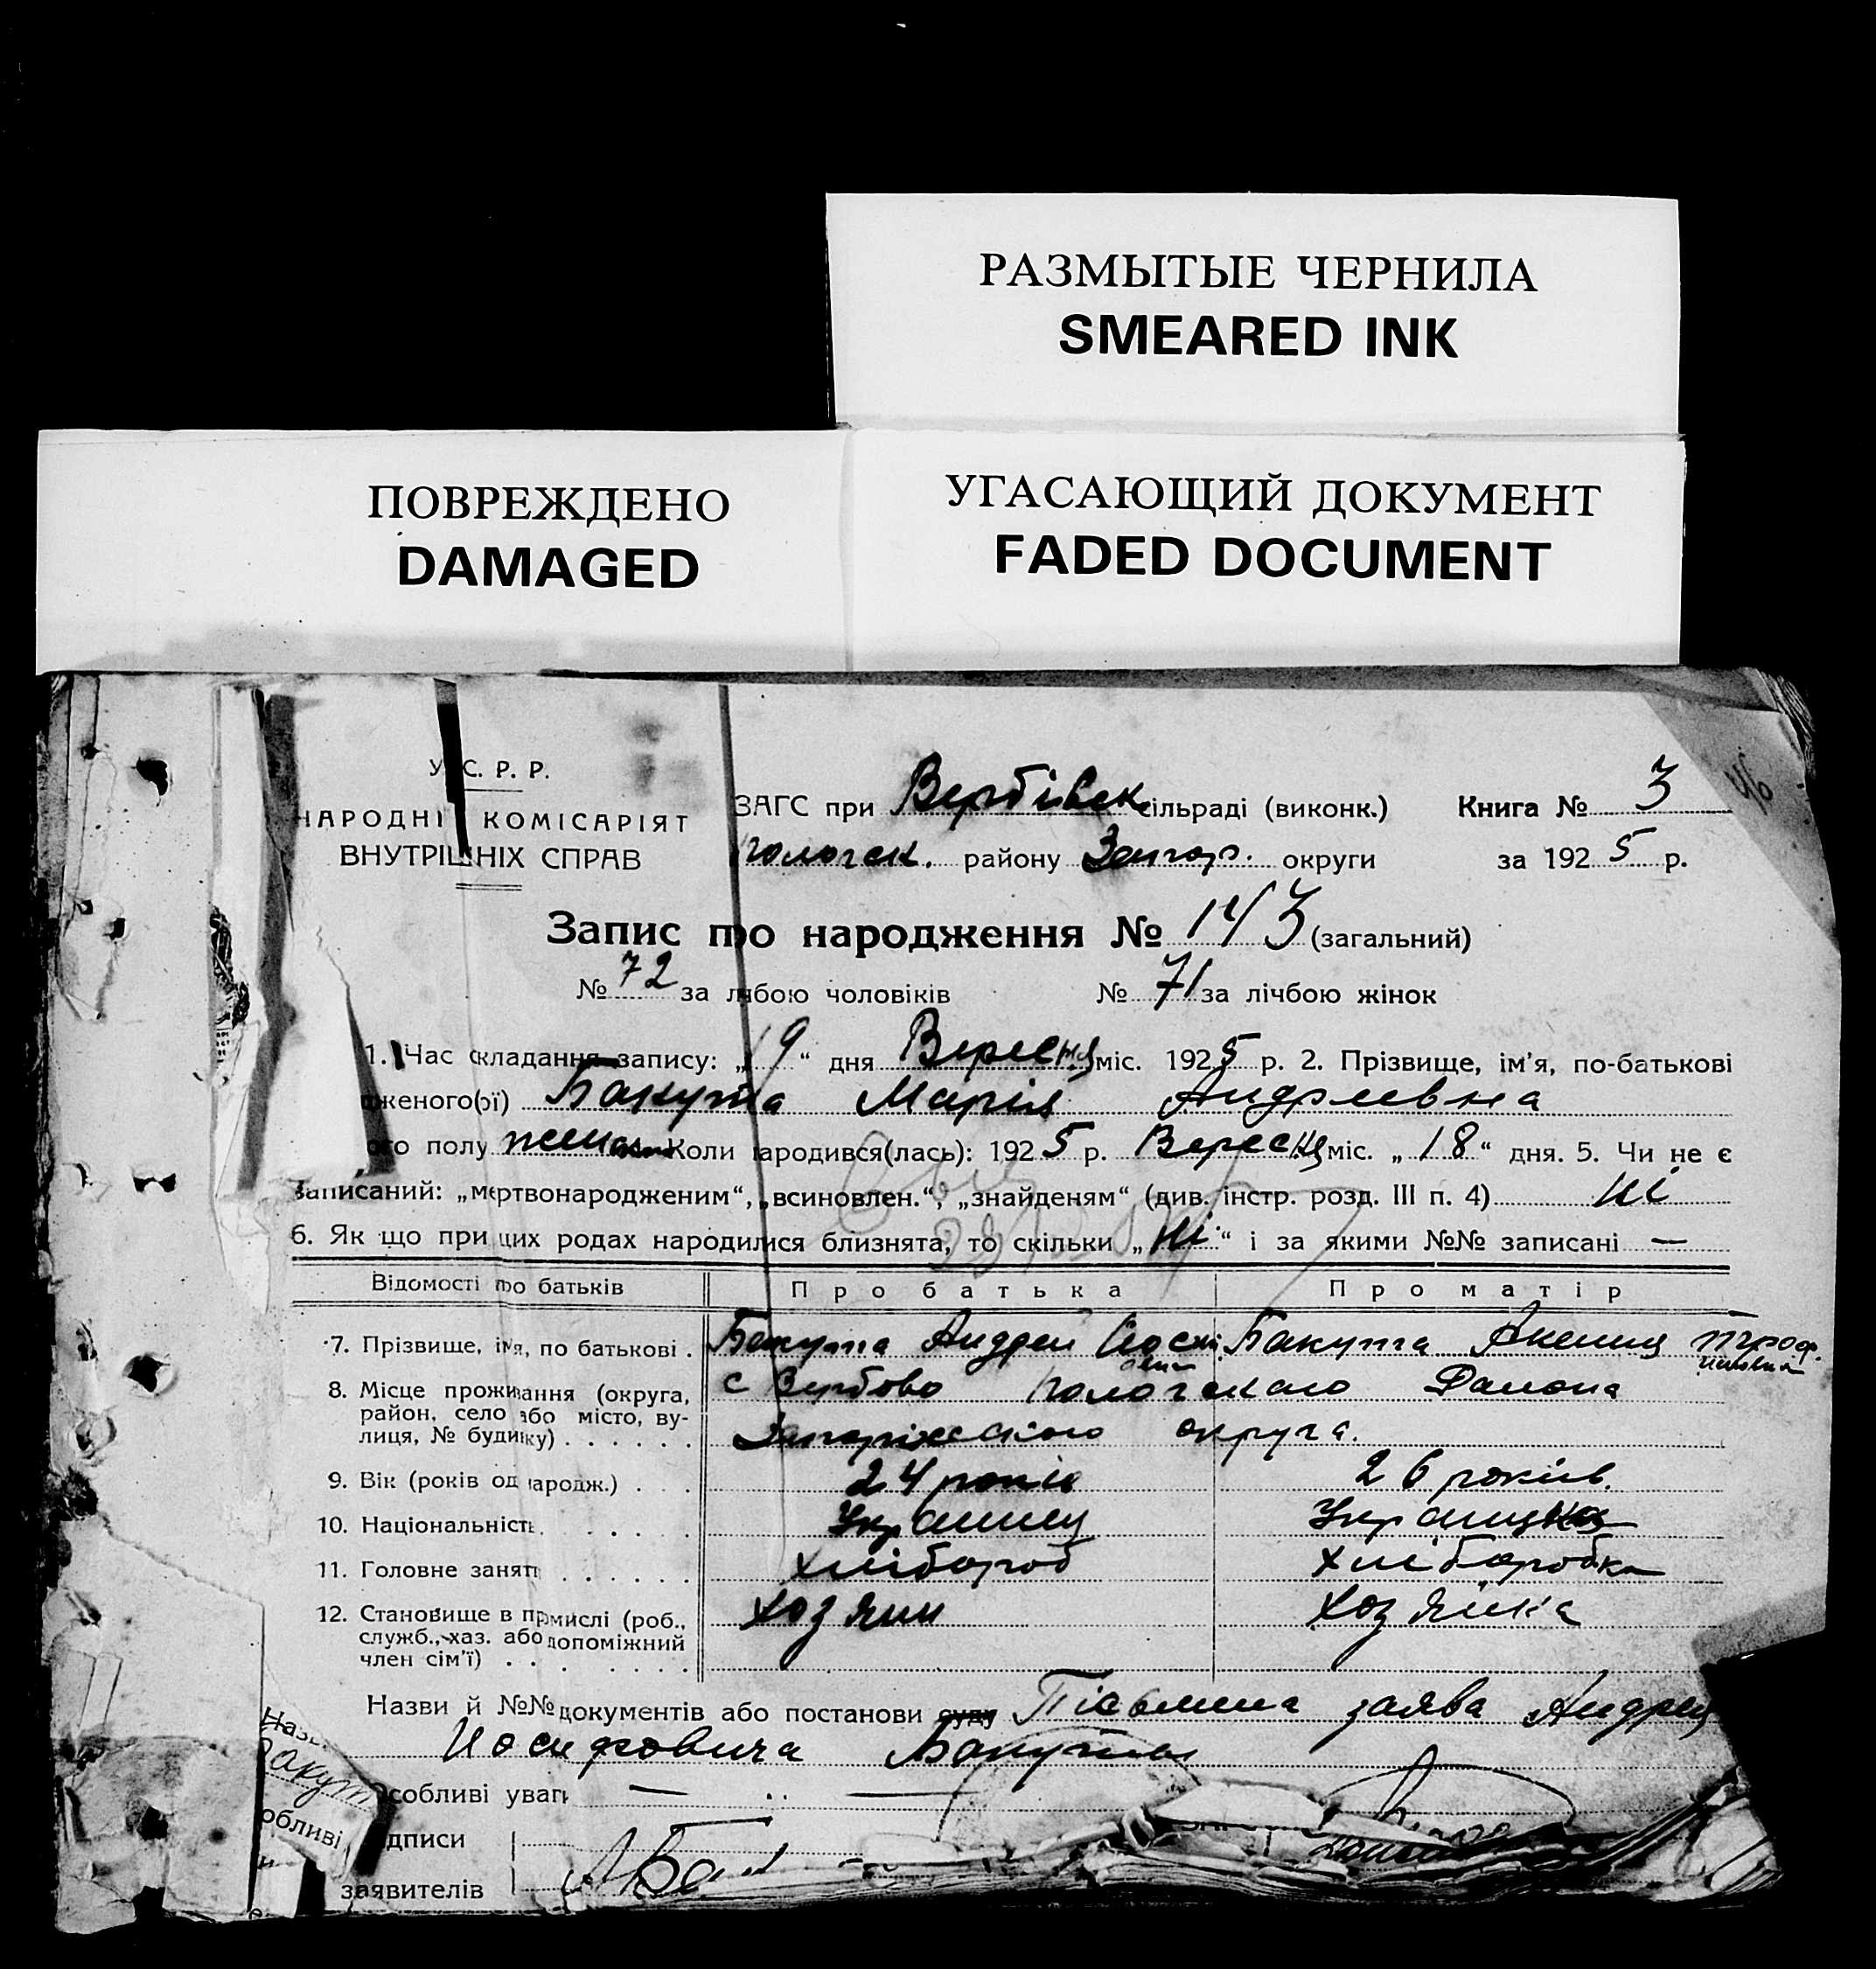 РАЗМЫТЫЕ ЧЕРНИЛА
SMEARED INK
ПОВРЕЖДЕНО
DAMAGED
УГАСАЮЩИЙ ДОКУМЕНТ
FADED DOCUMENT
46
У.С.Р.Р.
НАРОДНІ КОМІСАРІЯТ
ВНУТРІШНІХ СПРАВ
ЗАГС при Вербівск. сільраді (виконк.) Книга № 3
Пологск. району Запор. округи за 1925 р.
Запис про народження № 143 (загальний)
№ 72 за лічбою чоловіків № 71 за лічбою жінок
1. Час складання запису: „19“ дня Вересня міс. 1925 р. 2. Прізвище, ім’я, по-батькові
дженого(ої) Бакута Марія Андреевна
ого полу женск. Коли народився(лась): 1925 р. Вересня міс. „18“ дня. 5. Чи не є
записаний: „мертвонародженим“, „всиновлен.“, „знайденям“ (див. інстр. розд. III п. 4) ні
6. Як що при цих родах народилися близнята, то скільки „ні“ і за якими №№ записані —
Відомості про батьків Про батька Про матір
7. Прізвище, імя, по батькові . Бакута Андрей Иосиф. Бакута Аксения Троф.
8. Місце проживання (округа, район, село або місто, вулиця, № будинку) . . . . . . с Вербово Пологскаго Района
Запоріжского округа.
9. Вік (років од народж.) . . . 24 років 26 років.
10. Національність . . . . . Украинец Украинка
11. Головне занятт . . . . . . хлібороб хліборобка
12. Становище в промислі (роб., служб., хаз. або допоміжний член сім’ї) . . . . . . . Хозяин Хозяйка
Назви й №№ документів або постанови суду Пісьмена заява Андрея
Иосифовича Бакуты
Особливі уваги — —
дписи
заявителів А Бак
Назв
Бакут
обливі